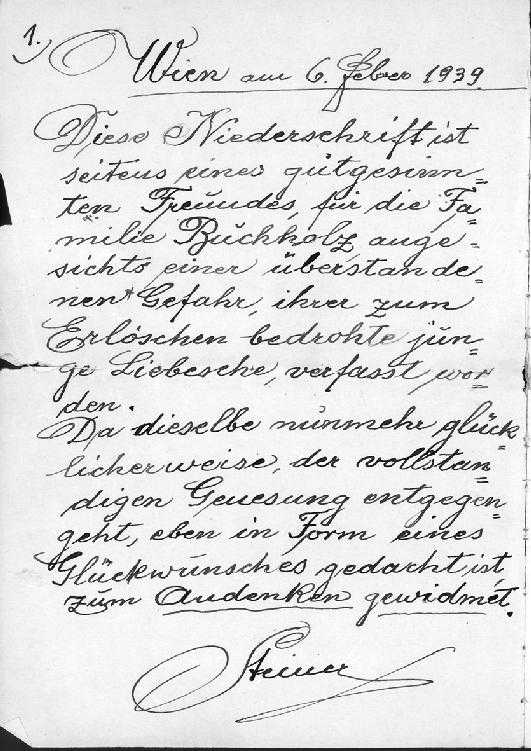 1.)
Wien am 6. Feber 1939.
Diese Niederschrift ist
seitens eines gutgesinn=
ten Freundes, für die Fa=
milie Buchholz, ange=
sichts einer überstande=
nen Gefahr, ihrer zum
Erlöschen bedrohte jun=
ge Liebesehe, verfasst wor=
den.
Da dieselbe nunmehr glück=
licherweise, der vollstän=
digen Genesung entgegen=
geht, eben in Form eines
Glückwunsches gedacht ist,
zum Andenken gewidmet.
Steiner